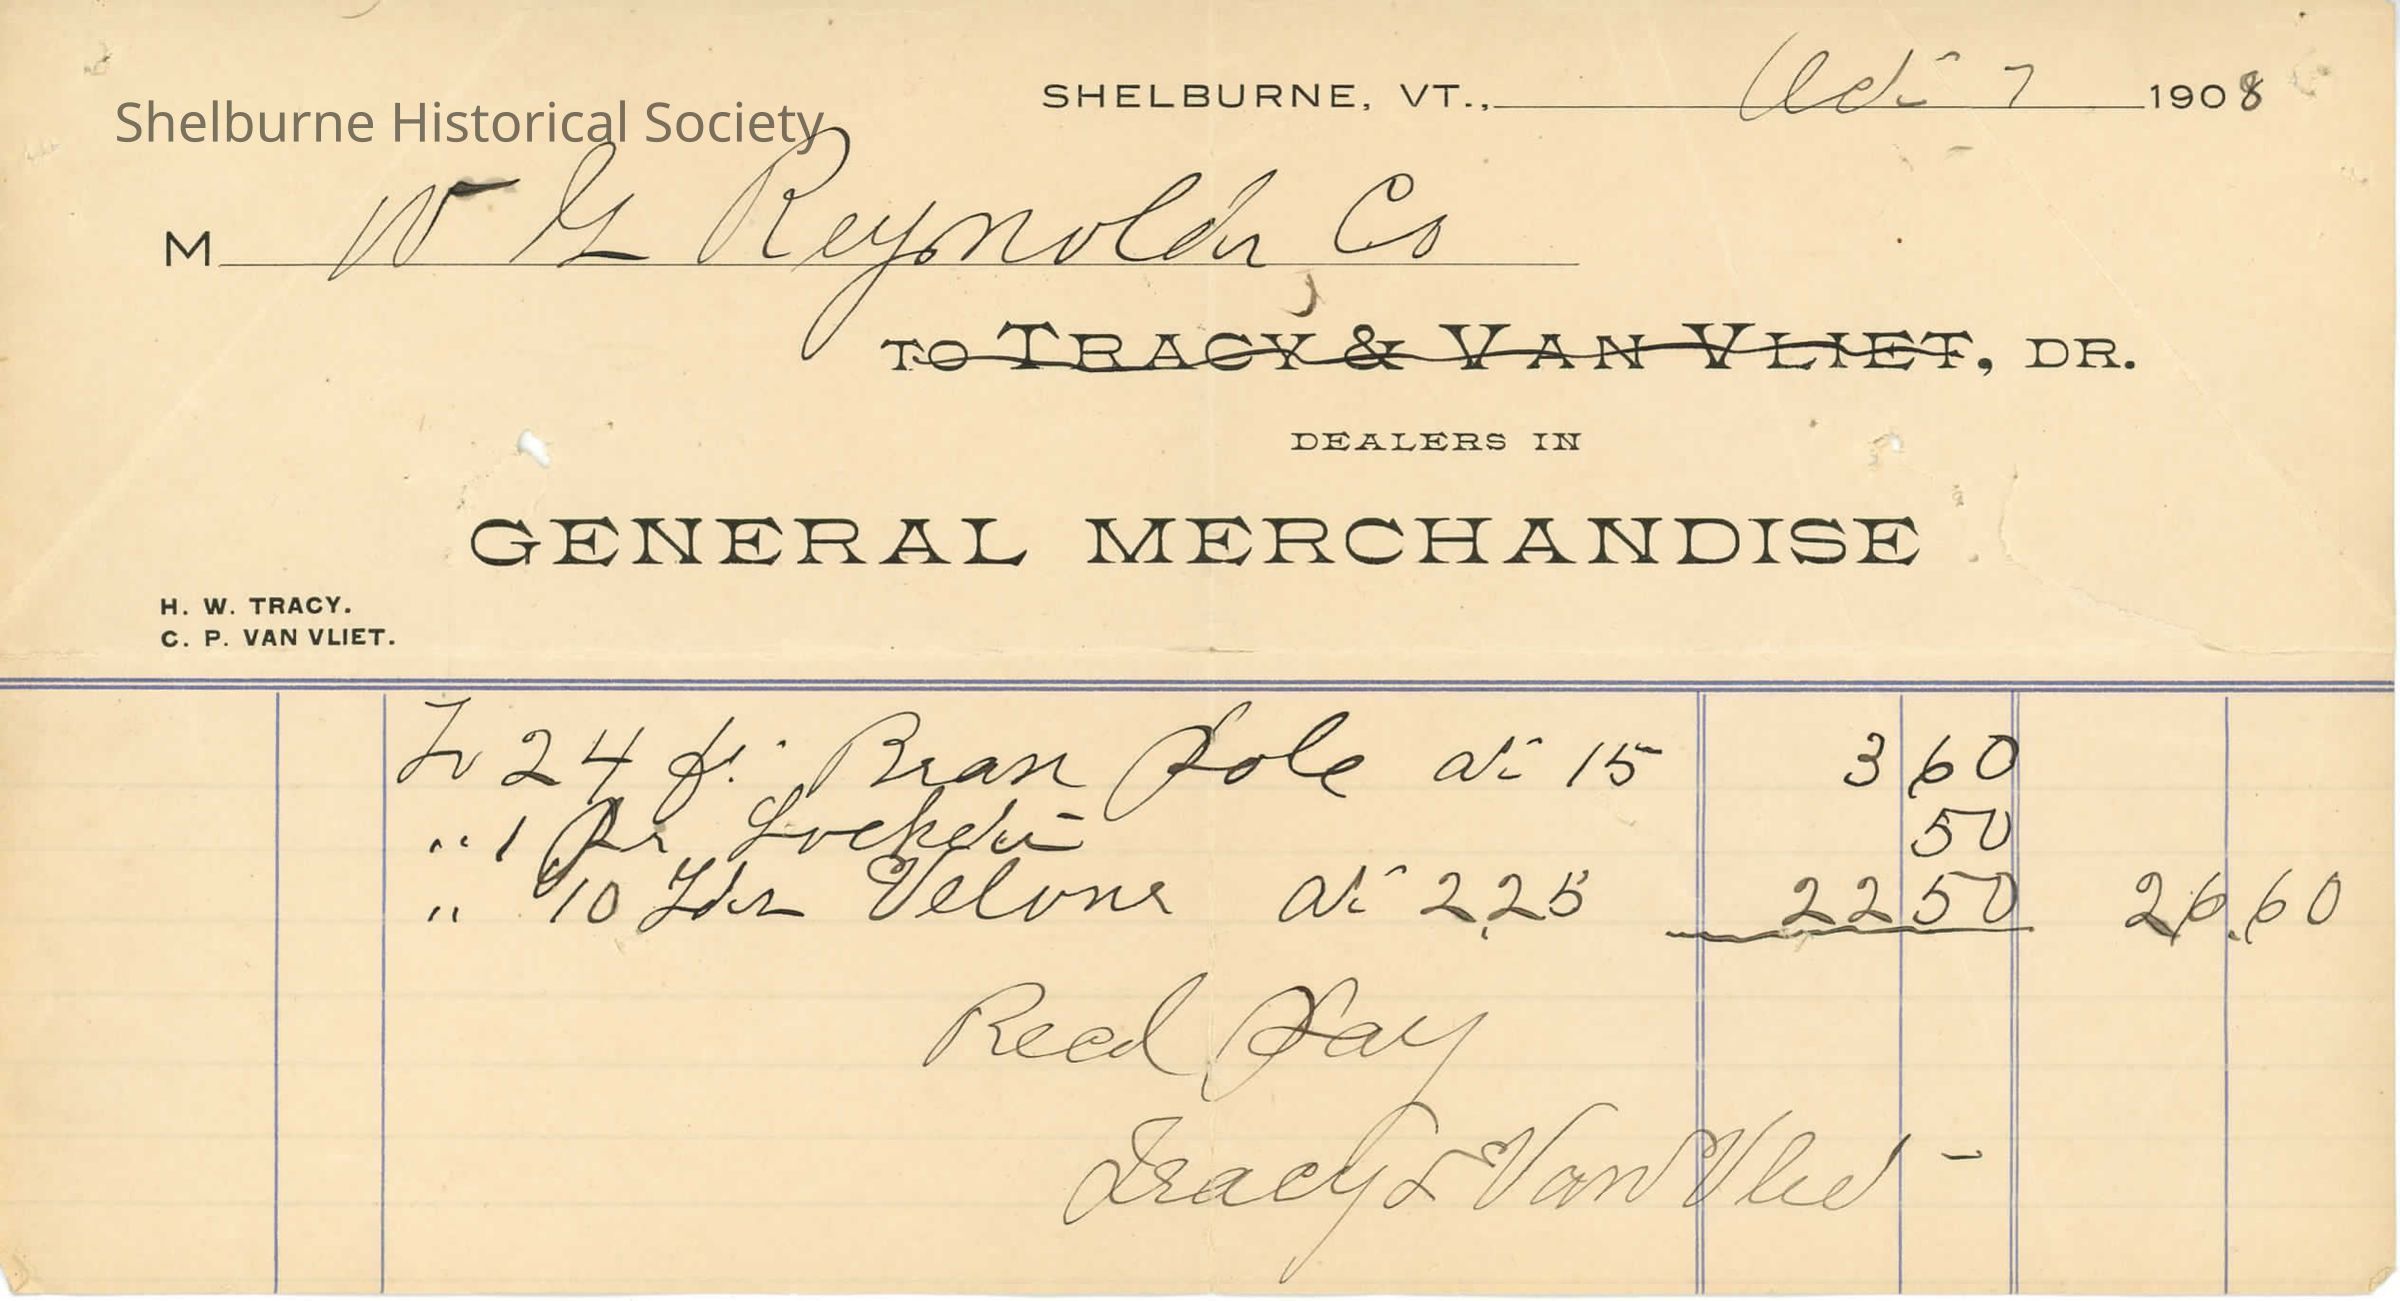 Shelburne Historical Society
SHELBURNE, VT., Oct 7 1908
M W G Reynolds Co
TO TRACY & VAN VLIET, DR.
DEALERS IN
GENERAL MERCHANDISE
H. W. TRACY.
C. P. VAN VLIET.
To 24 ft. Brass Pole at 15 3 60
" 1 Pr 50
" 10 Yds Velour at 2.25 22 50 26.60
Recd Pay
Tracy & Van Vliet